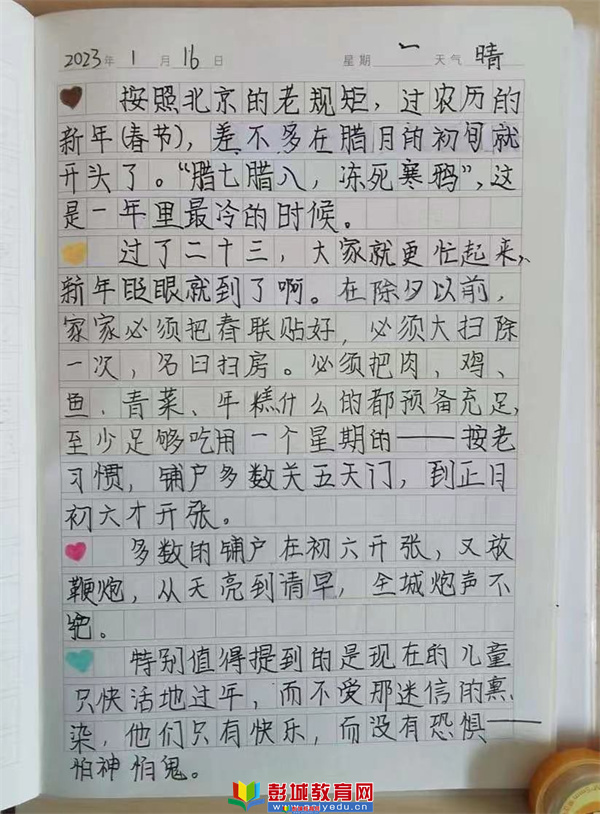 2023年 1月 16日 星期一 天气晴
按照北京的老规矩，过农历的
新年(春节)，差不多在腊月的初旬就
开头了。“腊七腊八，冻死寒鸦”，这
是一年里最冷的时候。
过了二十三，大家就更忙起来，
新年眨眼就到了啊。在除夕以前，
家家必须把春联贴好，必须大扫除
一次，名曰扫房。必须把肉、鸡、
鱼、青菜、年糕什么的都预备充足，
至少足够吃用一个星期的——按老
习惯，铺户多数关五天门，到正月
初六才开张。
多数的铺户在初六开张，又放
鞭炮，从天亮到清早，全城炮声不
绝。
特别值得提到的是现在的儿童
只快活地过年，而不受那迷信的熏
染，他们只有快乐，而没有恐惧——
怕神怕鬼。
彭城教育网
www.pajyedu.cn